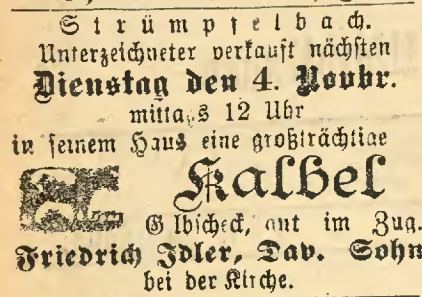 Strümpfelbach.
Unterzeichneter verkauft nächsten
Dienstag den 4. Novbr.
mittags 12 Uhr
in seinem Haus eine großträchtige
Kalbel
Gelbscheck, gut im Zug.
Friedrich Idler, Dav. Sohn
bei der Kirche.